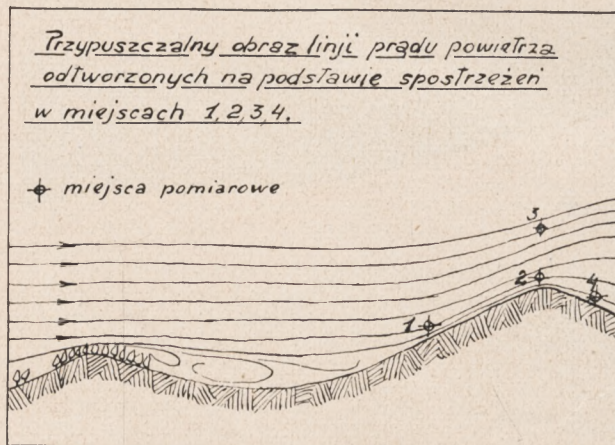 Przypuszczalny obraz linji prądu powietrza
odtworzonych na podstawie spostrzeżeń
w miejscach 1, 2, 3, 4.
miejsca pomiarowe
3
2
4
1